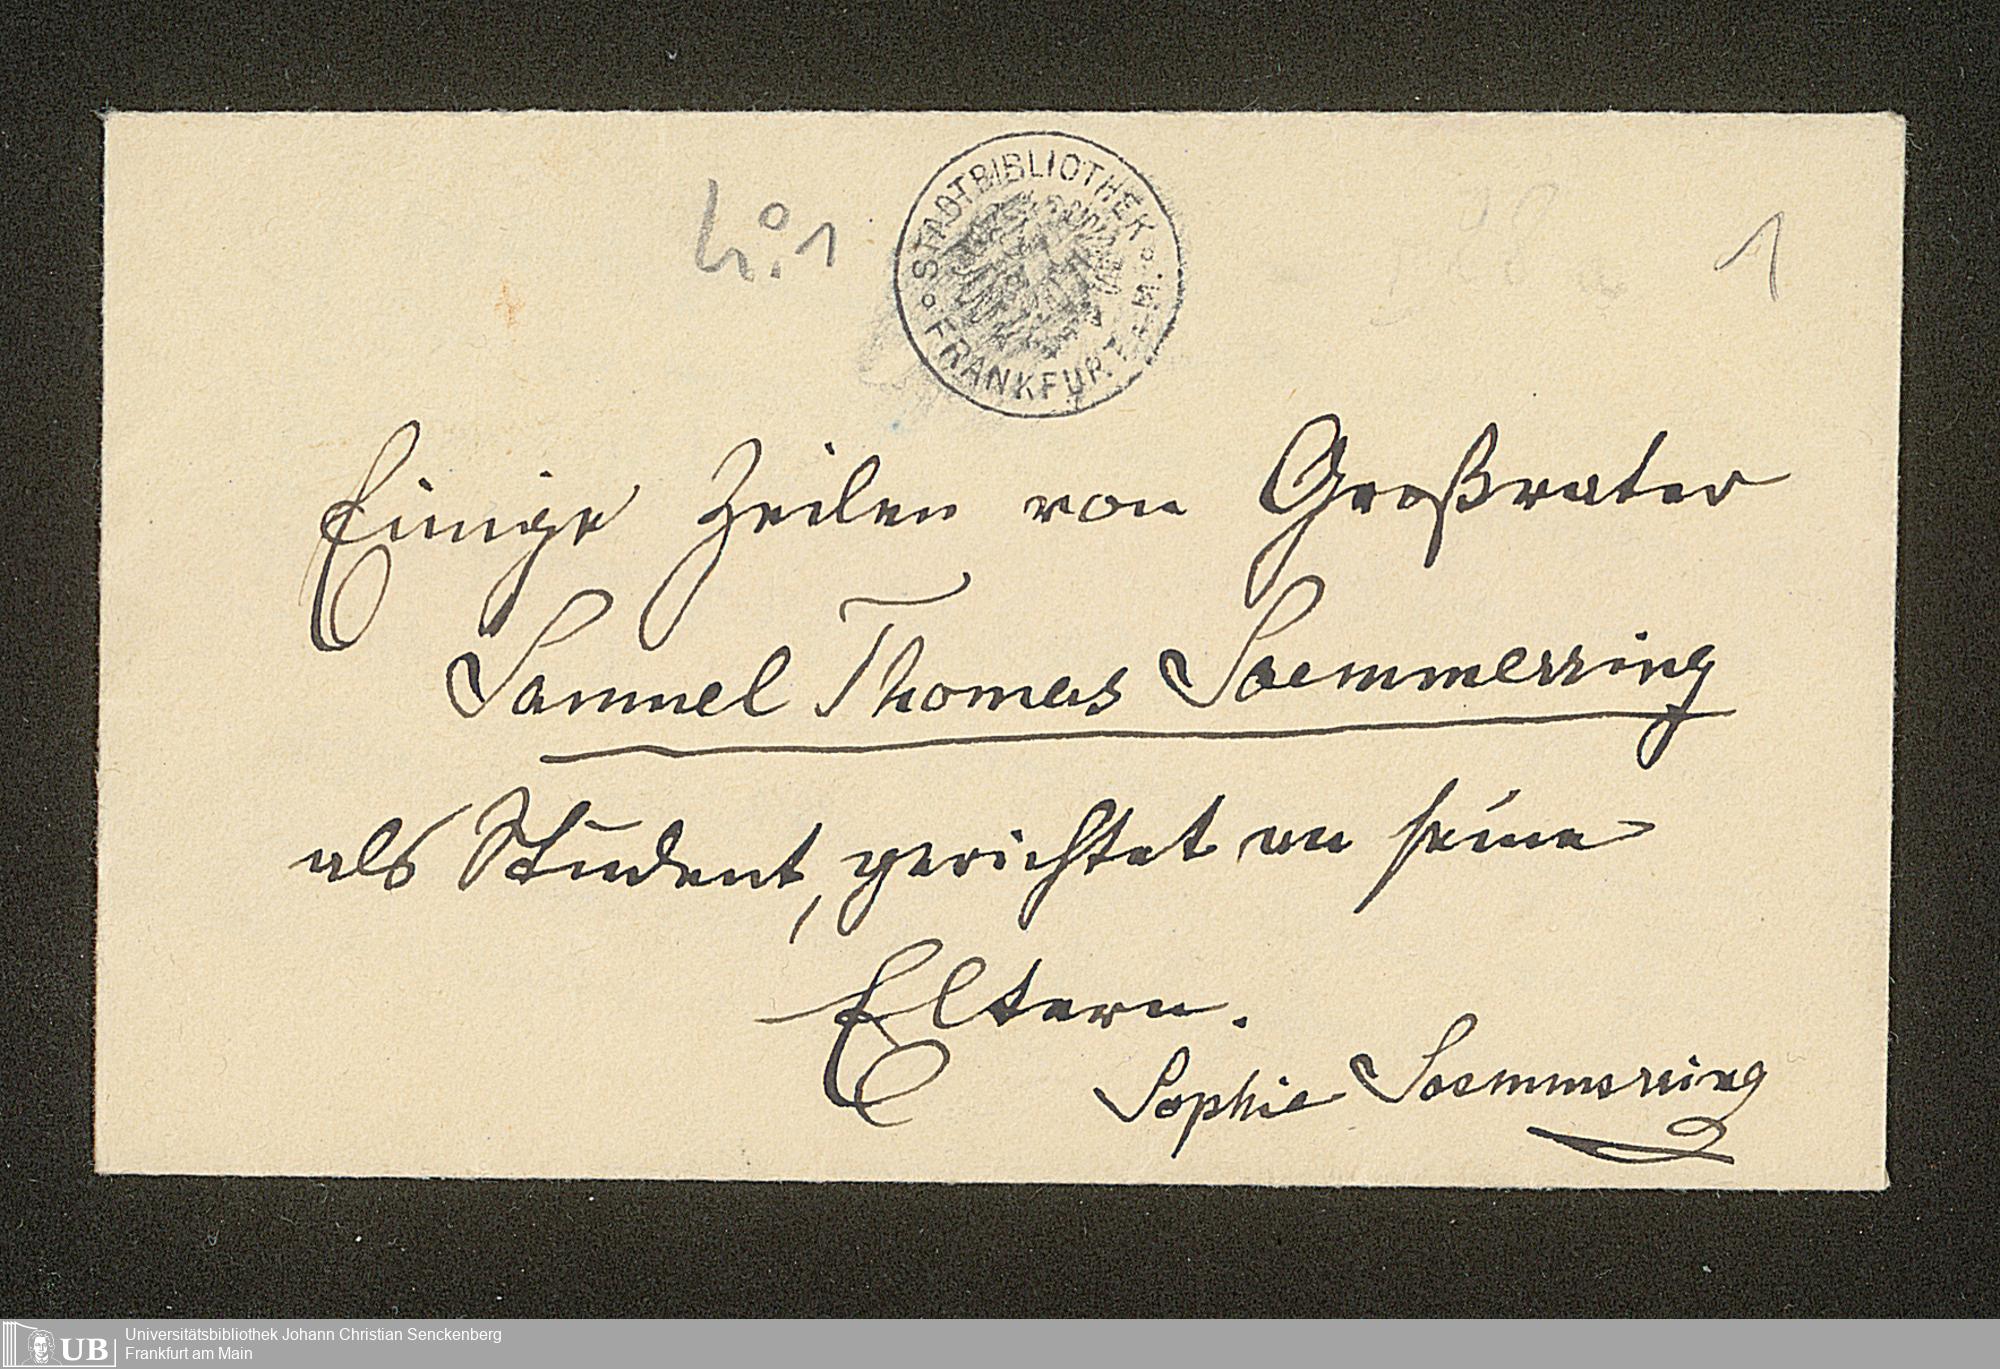 № 1
1
STADTBIBLIOTHEK
FRANKFURT A.M.
Einige Zeilen von Großvater
Samuel Thomas Soemmerring
als Student, gerichtet an seine
Eltern.
Sophie Soemmerring
UB
Universitätsbibliothek Johann Christian Senckenberg
Frankfurt am Main